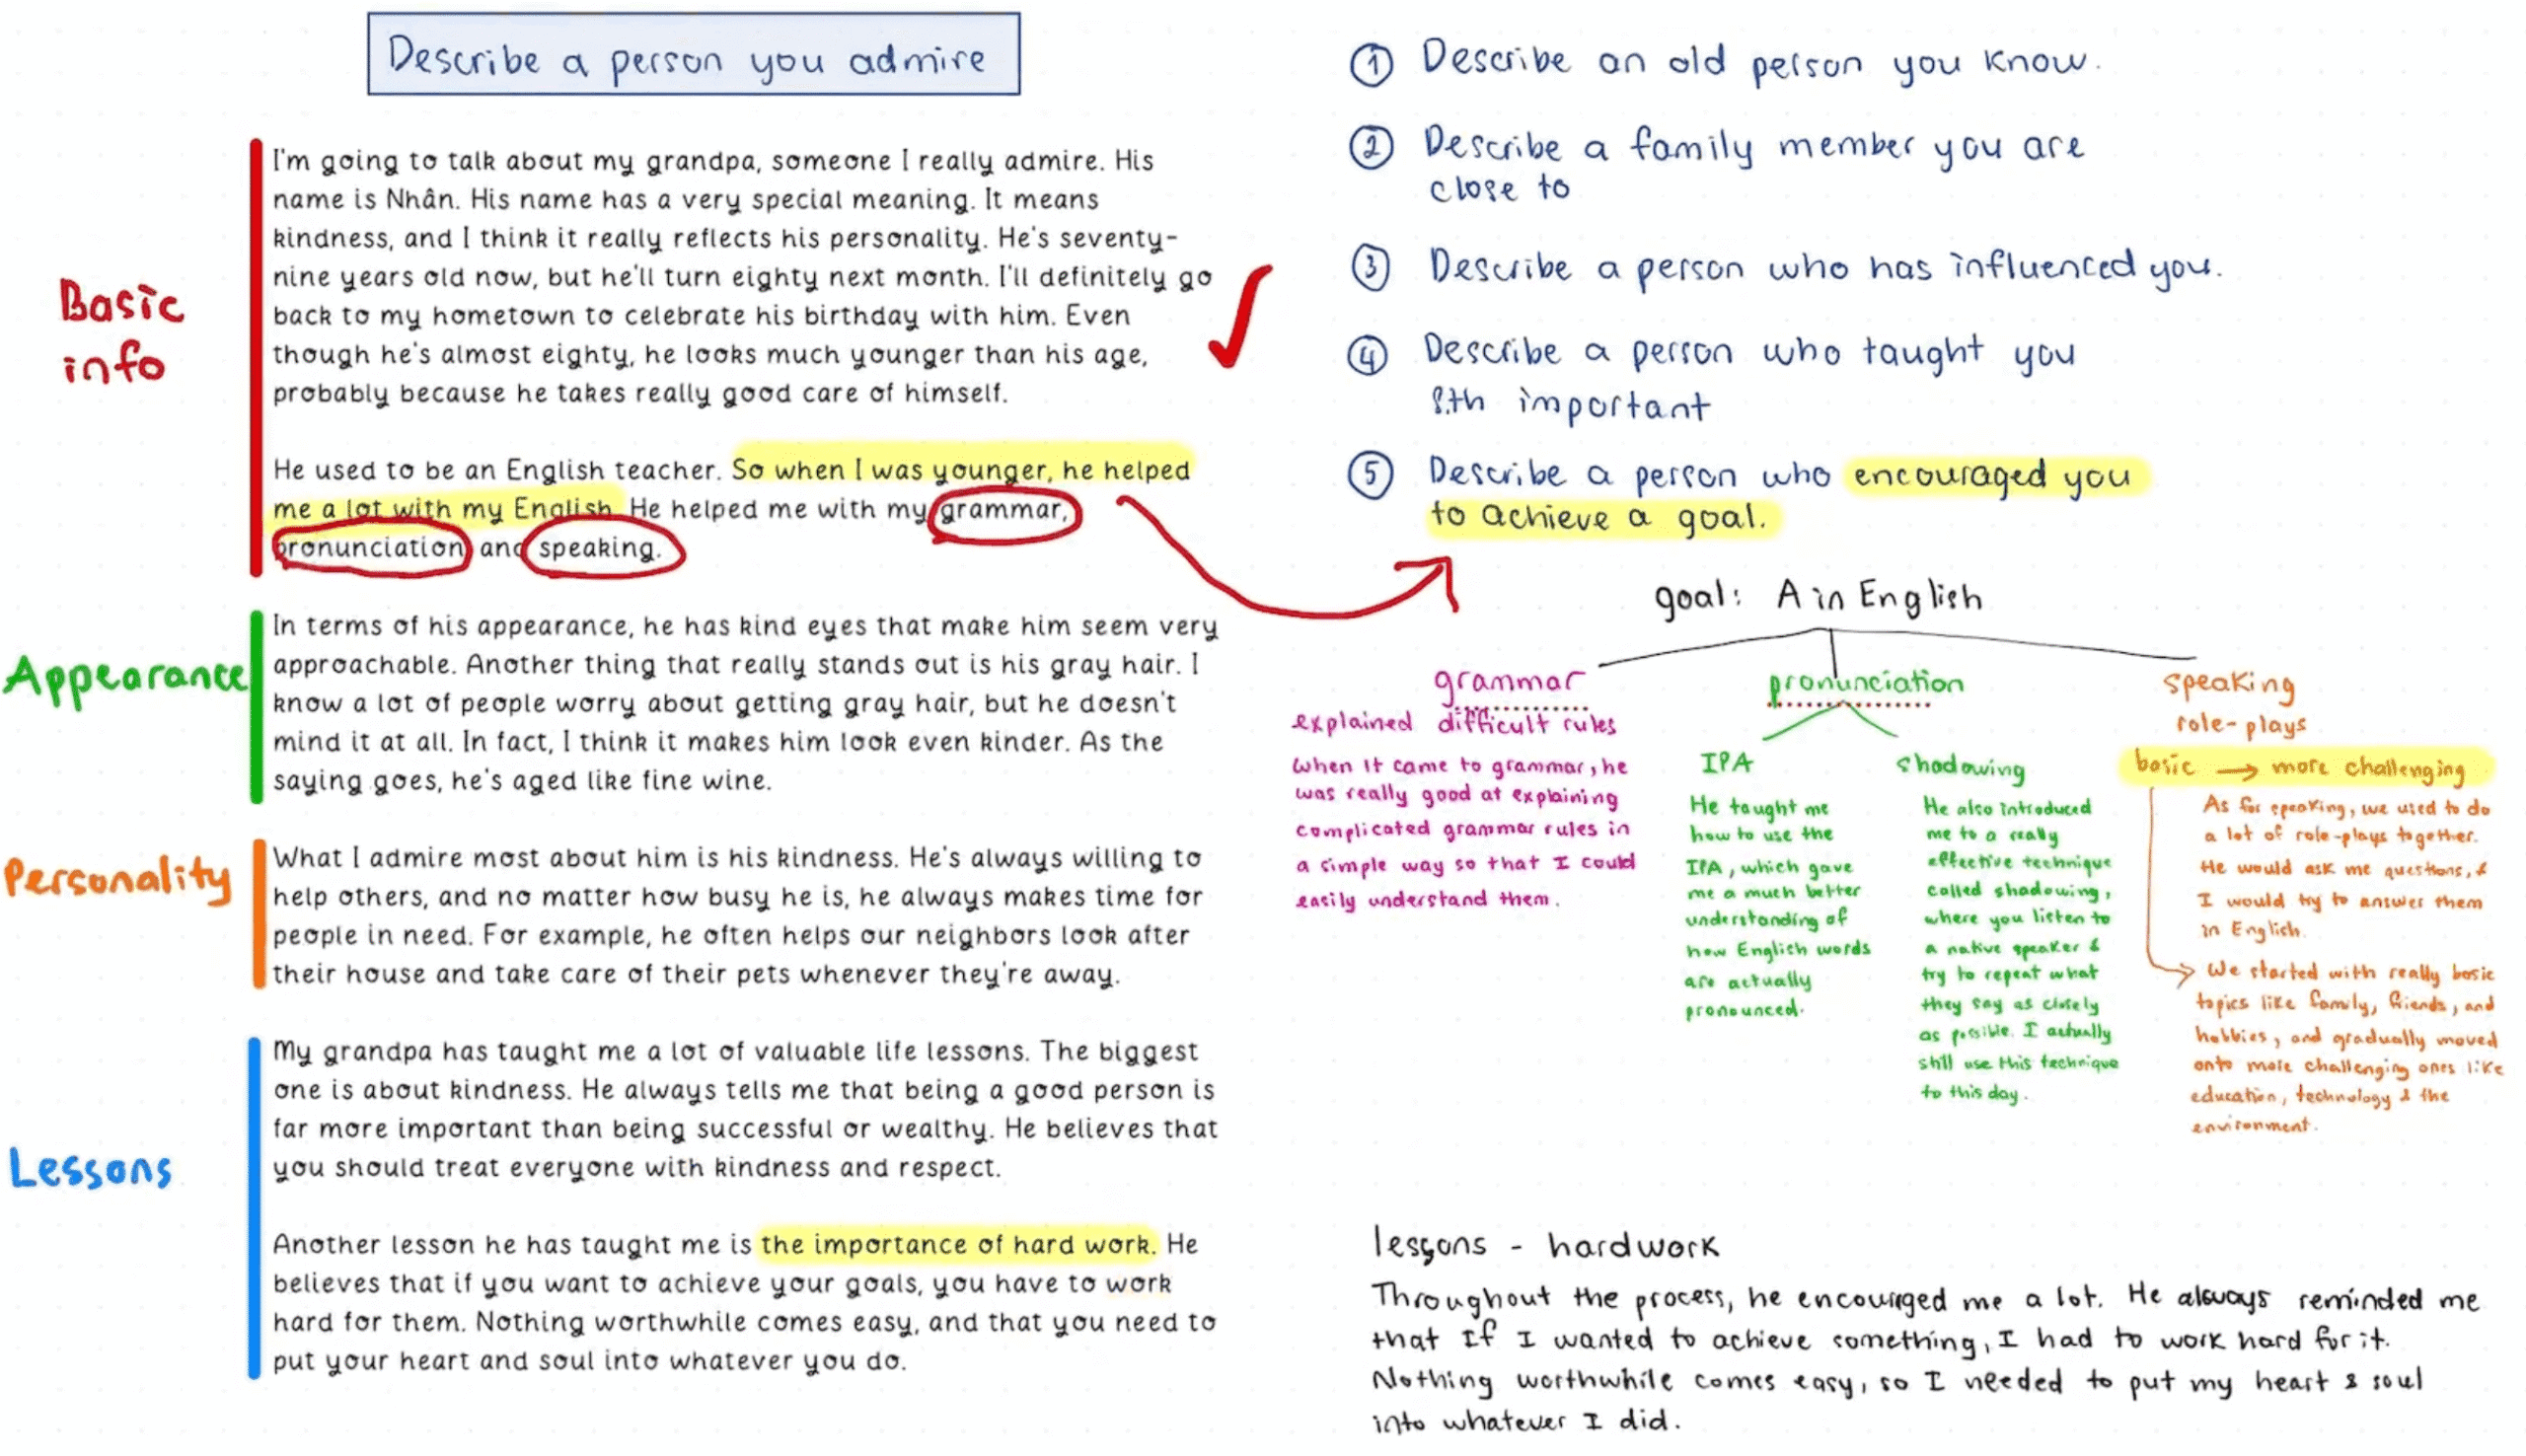 Describe a person you admire
Basic
info
I'm going to talk about my grandpa, someone I really admire. His
name is Nhân. His name has a very special meaning. It means
kindness, and I think it really reflects his personality. He's seventy-
nine years old now, but he'll turn eighty next month. I'll definitely go
back to my hometown to celebrate his birthday with him. Even
though he's almost eighty, he looks much younger than his age,
probably because he takes really good care of himself.
He used to be an English teacher. So when I was younger, he helped
me a lot with my English. He helped me with my grammar,
pronunciation and speaking.
Appearance
In terms of his appearance, he has kind eyes that make him seem very
approachable. Another thing that really stands out is his gray hair. I
know a lot of people worry about getting gray hair, but he doesn't
mind it at all. In fact, I think it makes him look even kinder. As the
saying goes, he's aged like fine wine.
Personality
What I admire most about him is his kindness. He's always willing to
help others, and no matter how busy he is, he always makes time for
people in need. For example, he often helps our neighbors look after
their house and take care of their pets whenever they're away.
Lessons
My grandpa has taught me a lot of valuable life lessons. The biggest
one is about kindness. He always tells me that being a good person is
far more important than being successful or wealthy. He believes that
you should treat everyone with kindness and respect.
Another lesson he has taught me is the importance of hard work. He
believes that if you want to achieve your goals, you have to work
hard for them. Nothing worthwhile comes easy, and that you need to
put your heart and soul into whatever you do.
① Describe an old person you know.
② Describe a family member you are
close to
③ Describe a person who has influenced you.
④ Describe a person who taught you
s.th important
⑤ Describe a person who encouraged you
to achieve a goal.
goal: A in English
grammar
explained difficult rules
when it came to grammar, he
was really good at explaining
complicated grammar rules in
a simple way so that I could
easily understand them.
pronunciation
IPA
He taught me
how to use the
IPA, which gave
me a much better
understanding of
how English words
are actually
pronounced.
shadowing
He also introduced
me to a really
effective technique
called shadowing,
where you listen to
a native speaker &
try to repeat what
they say as closely
as possible. I actually
still use this technique
to this day.
speaking
role-plays
basic → more challenging
As for speaking, we used to do
a lot of role-plays together.
He would ask me questions, &
I would try to answer them
in English.
We started with really basic
topics like family, friends, and
hobbies, and gradually moved
onto more challenging ones like
education, technology & the
environment.
lessons - hardwork
Throughout the process, he encouraged me a lot. He always reminded me
that If I wanted to achieve something, I had to work hard for it.
Nothing worthwhile comes easy, so I needed to put my heart & soul
into whatever I did.